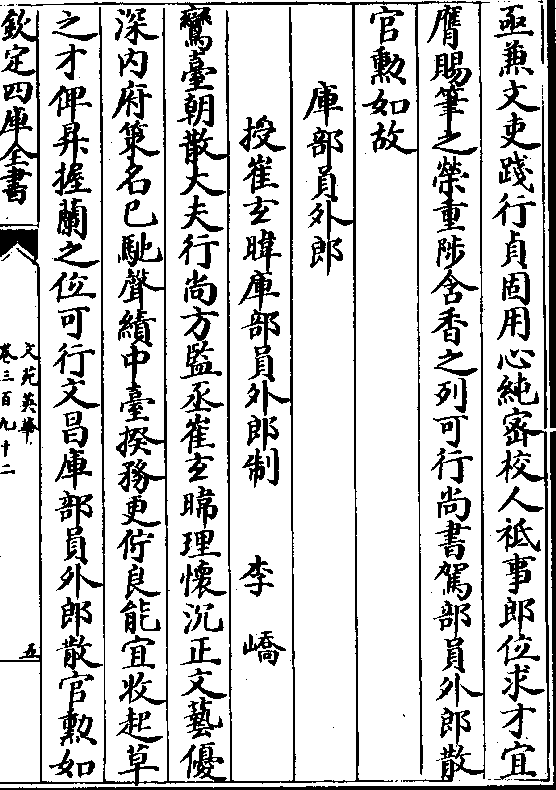 亟兼文吏踐行貞固用心純密校人祗事郎位求才宜
膺賜筆之榮重陟含香之列可行尚書駕部員外郎散
官勲如故
庫部員外郎
授崔𤣥暐庫部員外郎制 李嶠
鸞臺朝散大夫行尚方監丞崔𤣥暐理懷沉正文藝優
深内府策名已馳聲績中臺揆務更佇良能宜收起草
之才俾昇握蘭之位可行文昌庫部員外郎散官勲如
欽定四庫全書
文苑英華
卷三百九十二
五